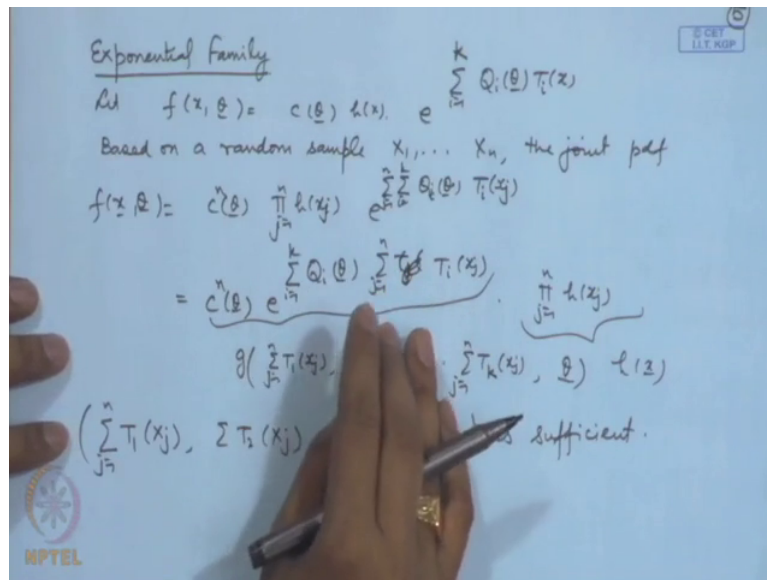 Exponential Family
© CET
I.I.T. KGP
Let f(x, θ) = c(θ) h(x). e^{\sum_{i=1}^{k} Q_i(θ) T_i(x)}
Based on a random sample X₁, ... Xₙ, the joint pdf
f(x, θ) = cⁿ(θ) \prod_{j=1}^{n} h(x_j) e^{\sum_{j=1}^{n} \sum_{i=1}^{k} Q_i(θ) T_i(x_j)}
= cⁿ(θ) e^{\sum_{i=1}^{k} Q_i(θ) \sum_{j=1}^{n} T_i(x_j)} . \prod_{j=1}^{n} h(x_j)
g( \sum_{j=1}^{n} T₁(x_j), . \sum_{j=1}^{n} T_k(x_j), θ) h(x)
( \sum_{j=1}^{n} T₁(X_j), Σ T₂(X_j) is sufficient.
NPTEL